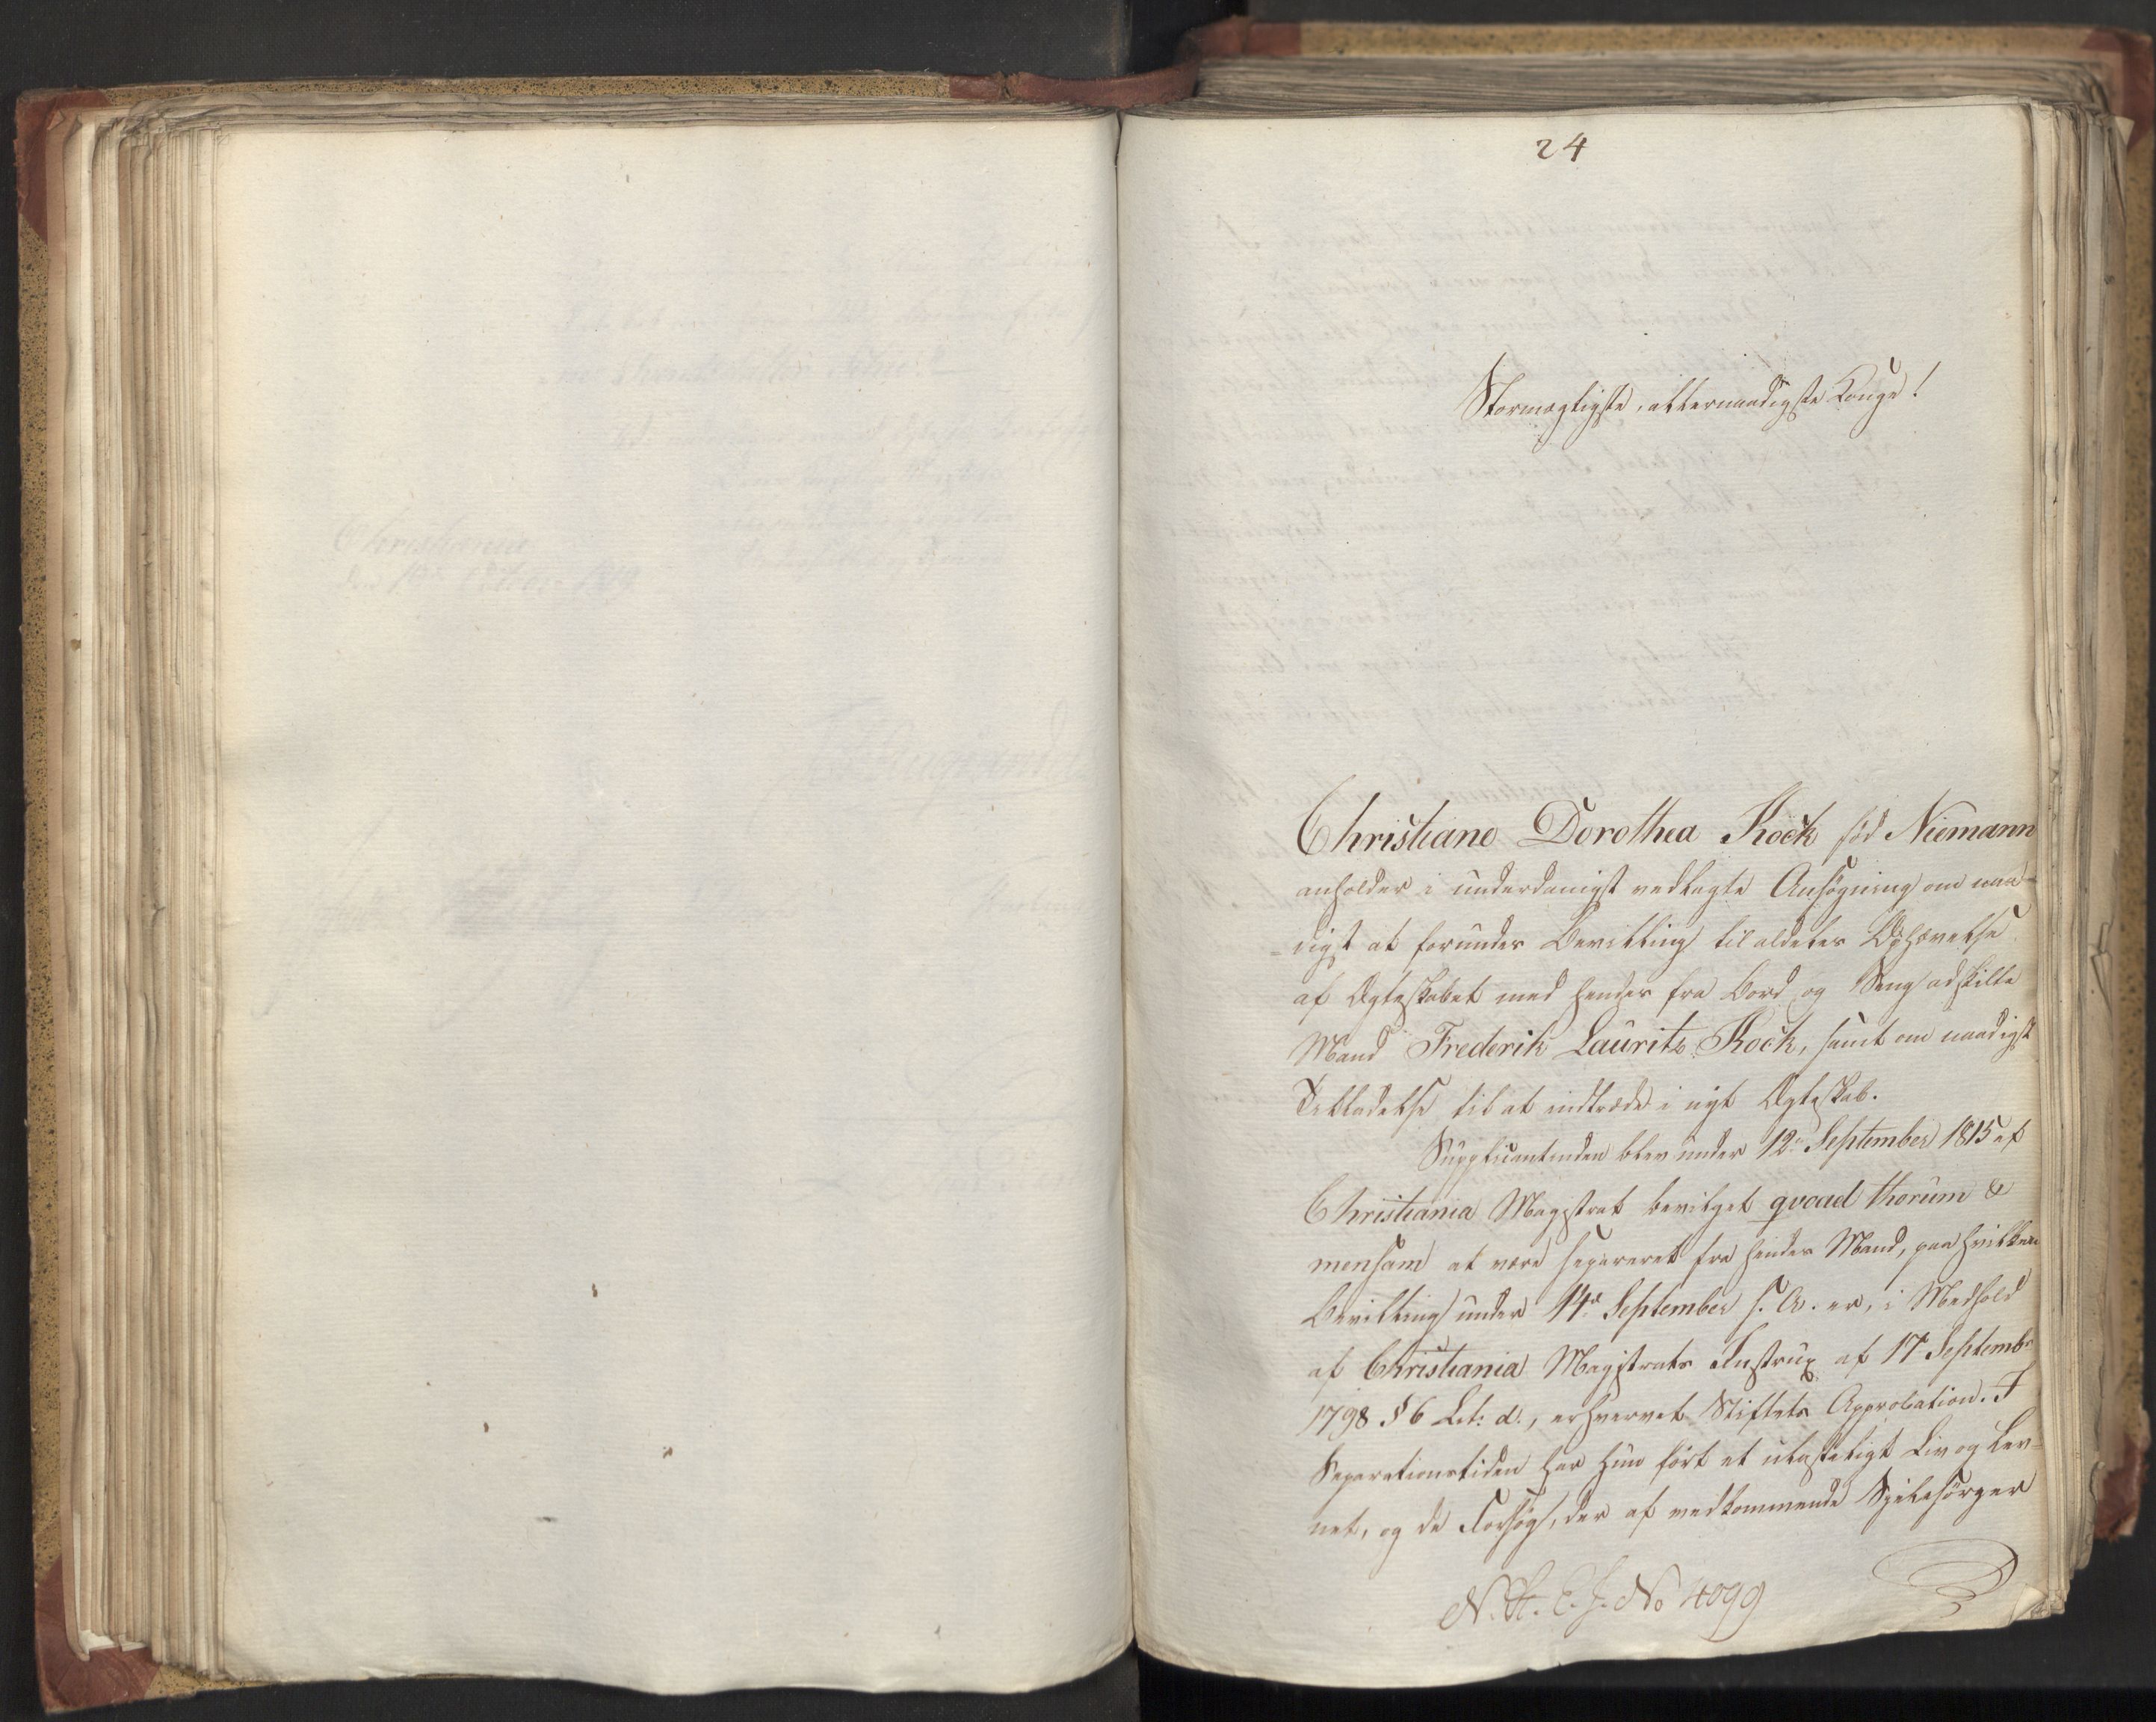 24
Stormægtigste, allernaadigste Konge!
Christiane Dorothea Kock fød Niemann
anholder i underdanigst vedlagte Ansøgning om naa-
digst at forundes Bevilling til aldeles Ophævelse
af Ægteskabet med hendes fra Bord og Seng adskilte
Mand Frederik Laurits Kock, samt om naadigst
Tilladelse til at indtræde i nyt Ægteskab.
Supplicantinden blev under 12te September 1815 af
Christiania Magistrat bevilget qvoad thorum &
mensam at være separeret fra hendes Mand, paa hvilken
Bevilling under 14de September s. A. er, i Medhold
af Christiania Magistrats Instrux af 17 Septembr
1798 § 6 Lit: d., erhvervet Stiftets Approbation. I
Separationstiden har hun ført et ulasteligt Liv og Lev-
net, og de Forsøg, der af vedkommende Sjelesørger
N. St. E. J. No 4099